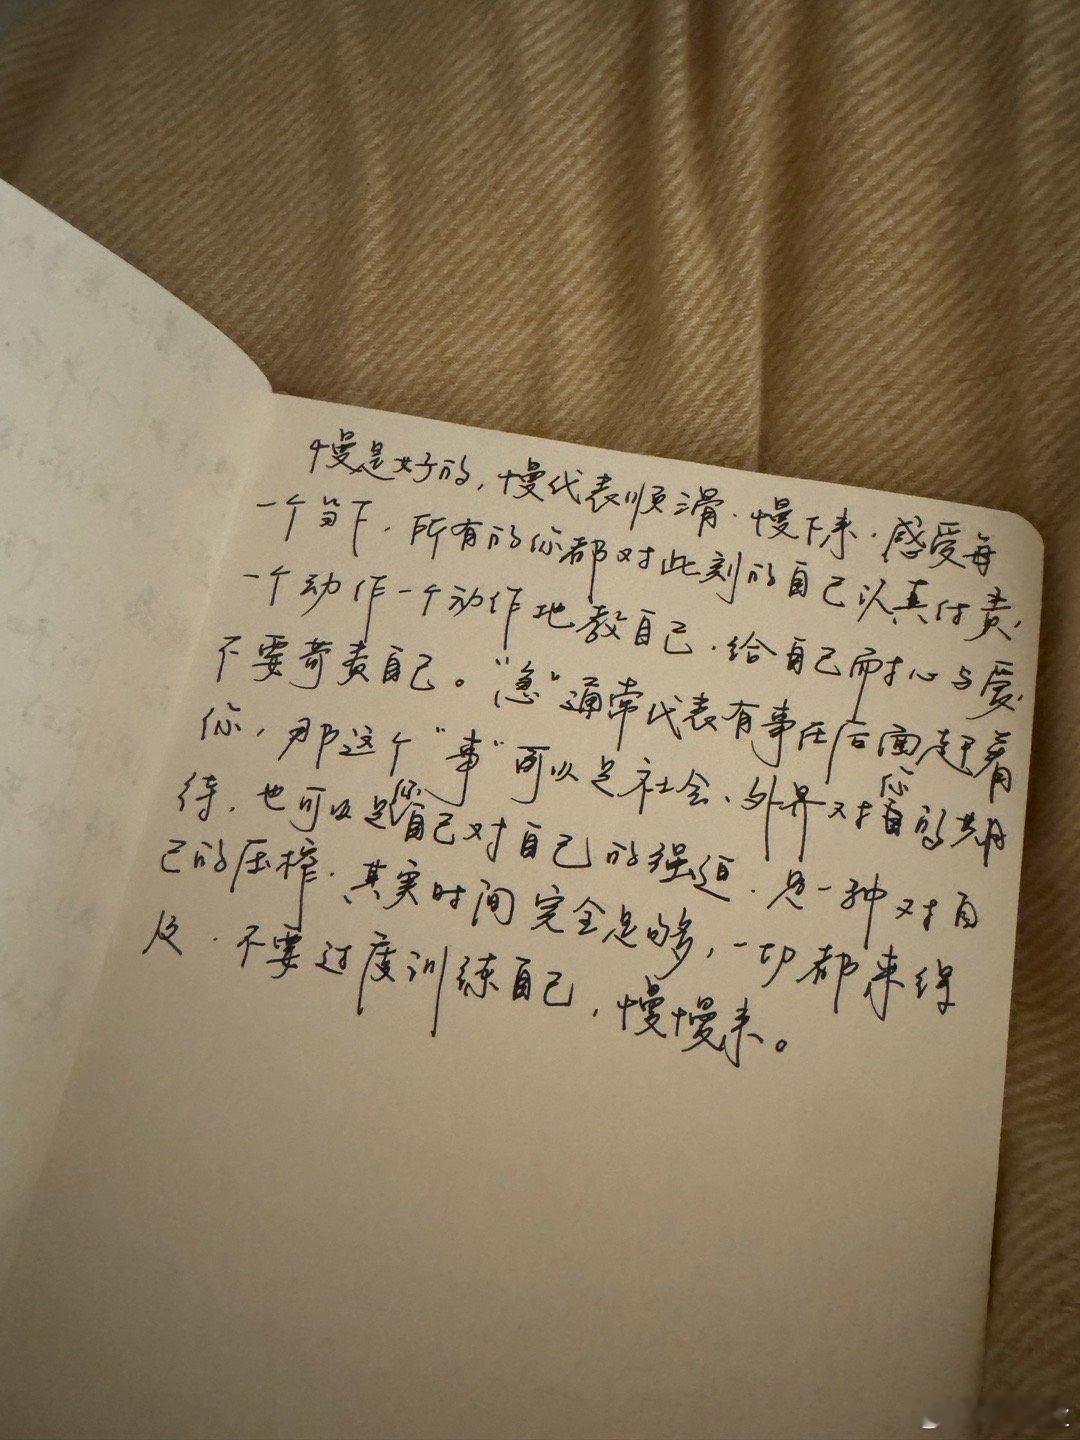 慢是好的,慢代表顺滑.慢下来.感受每
一个当下.所有的你都对此刻的自己认真付责.
一个动作一个动作地教自己.给自己耐心与爱.
不要苛责自己。“急”通常代表有事在后面赶着
你,那这个“事”可以是社会、外界对您的期
待.也可以是您自己对自己的强迫.是一种对自
己的压榨.其实时间完全是够,一切都来得
及.不要过度训练自己,慢慢来。